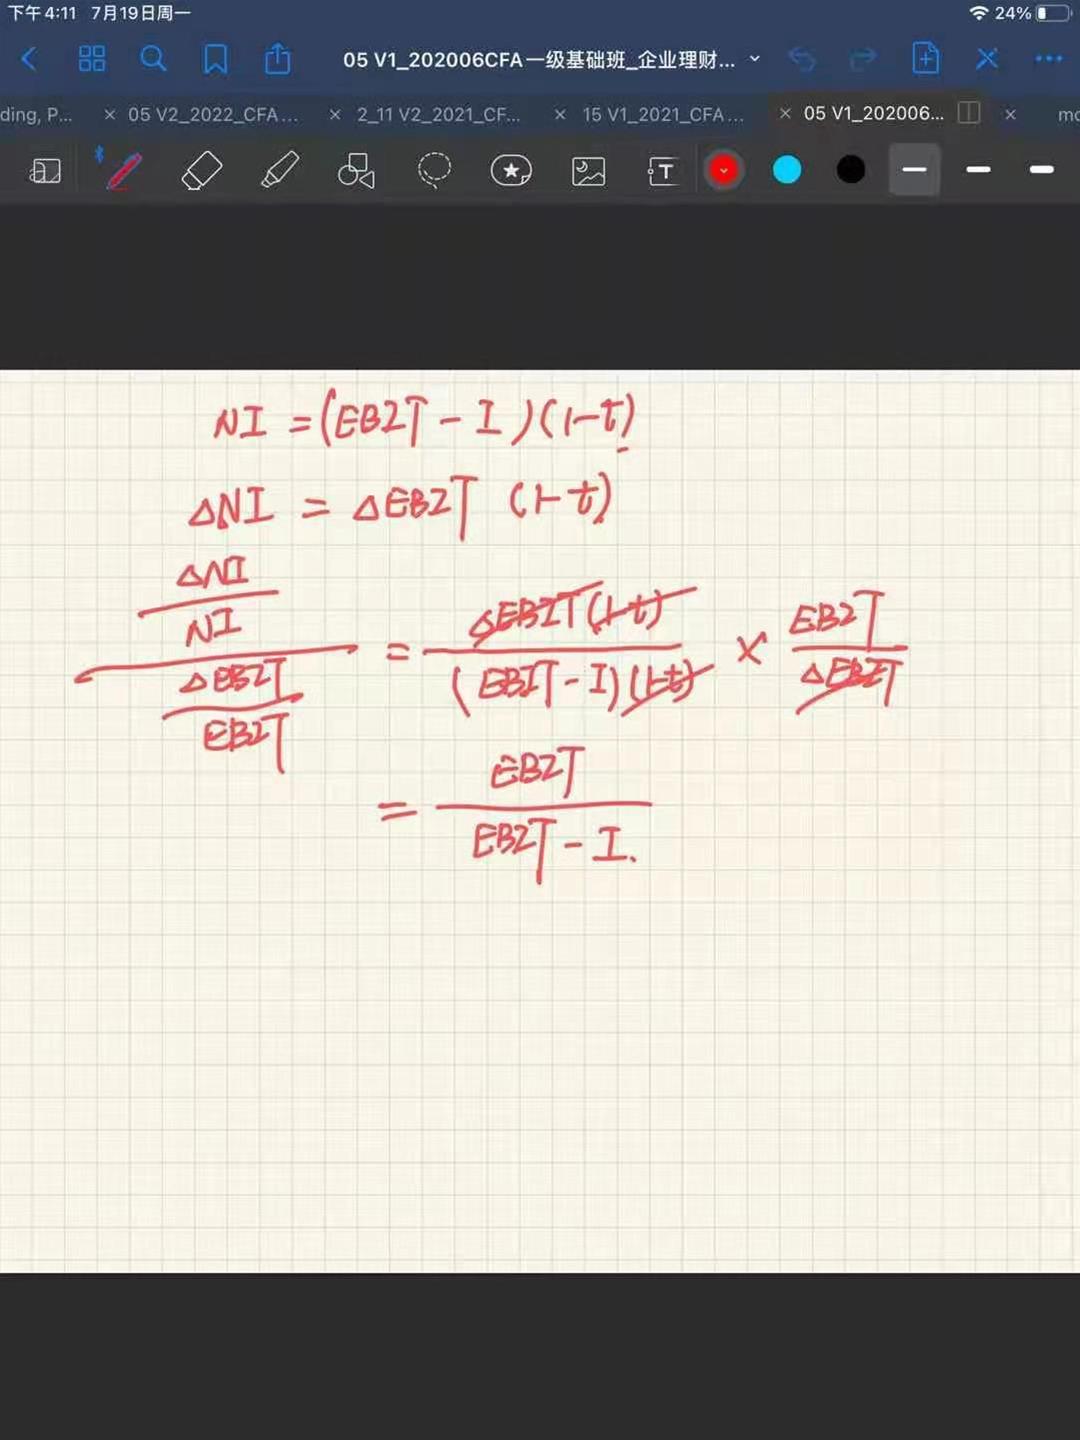 下午4:11 7月19日周一 24%
05 V1_202006CFA一级基础班_企业理财...
ding, P... × 05 V2_2022_CFA... × 2_11 V2_2021_CF... × 15 V1_2021_CFA... × 05 V1_202006... × mo
T
NI = (EBIT - I)(1-t)
ΔNI = ΔEBIT (1-t)
ΔNI
NI
ΔEBIT
EBIT
= ΔEBIT(1-t) / (EBIT - I)(1-t) × EBIT / ΔEBIT
= EBIT / EBIT - I.